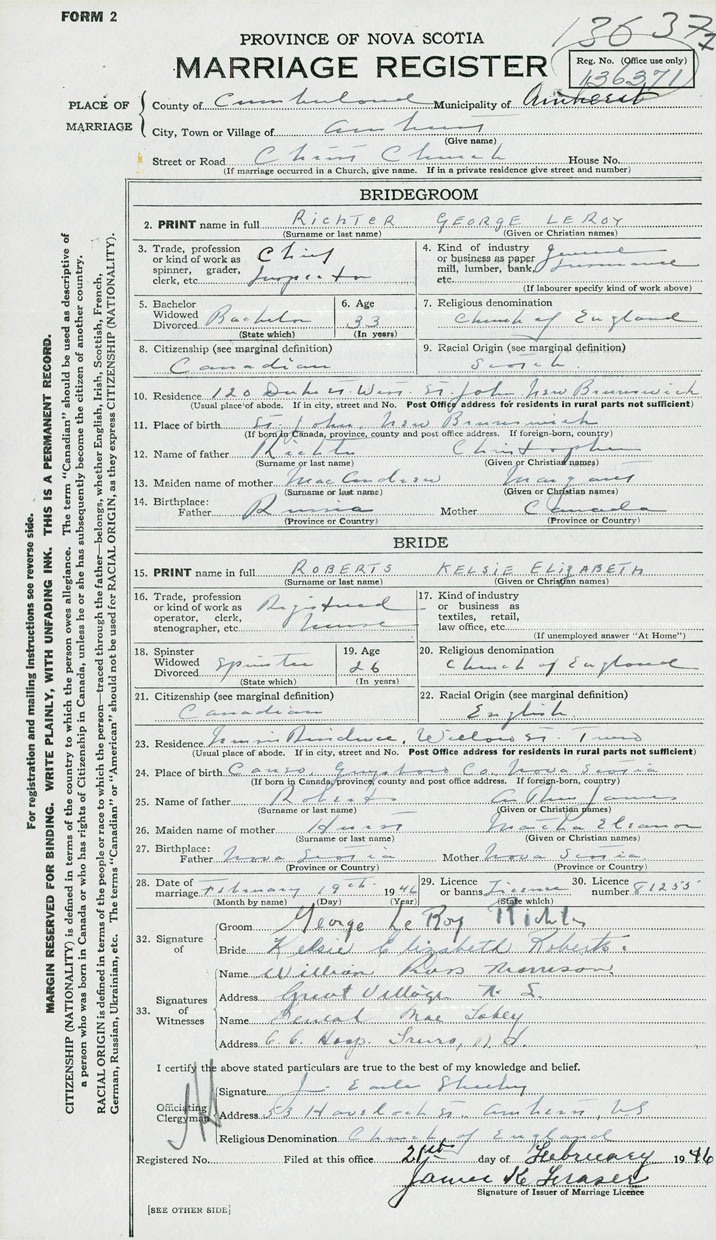 FORM 2
136377
PROVINCE OF NOVA SCOTIA
MARRIAGE REGISTER
Reg. No. (Office use only)
136371
PLACE OF MARRIAGE
County of Cumberland Municipality of Amherst
City, Town or Village of Amherst
(Give name)
Street or Road Christ Church House No.
(If marriage occurred in a Church, give name. If in a private residence give street and number)
BRIDEGROOM
2. PRINT name in full RICHTER GEORGE LE ROY
(Surname or last name) (Given or Christian names)
3. Trade, profession or kind of work as spinner, grader, clerk, etc. Chief Inspector
4. Kind of industry or business as paper mill, lumber, bank, etc. General Insurance
(If labourer specify kind of work above)
5. Bachelor Widowed Divorced Bachelor
(State which)
6. Age 33
(In years)
7. Religious denomination
Church of England
8. Citizenship (see marginal definition)
Canadian
9. Racial Origin (see marginal definition)
Scotch
10. Residence 120 Duke St. West St John New Brunswick
(Usual place of abode. If in city, street and No. Post Office address for residents in rural parts not sufficient)
11. Place of birth St. John, New Brunswick
(If born in Canada, province, county and post office address. If foreign-born, country)
12. Name of father Richter Christopher
(Surname or last name) (Given or Christian names)
13. Maiden name of mother MacAndrew Margaret
(Surname or last name) (Given or Christian names)
14. Birthplace: Father Russia Mother Canada
(Province or Country) (Province or Country)
BRIDE
15. PRINT name in full ROBERTS KELSIE ELIZABETH
(Surname or last name) (Given or Christian names)
16. Trade, profession or kind of work as operator, clerk, stenographer, etc. Registered Nurse
17. Kind of industry or business as textiles, retail, law office, etc.
(If unemployed answer "At Home")
18. Spinster Widowed Divorced Spinster
(State which)
19. Age 26
(In years)
20. Religious denomination
Church of England
21. Citizenship (see marginal definition)
Canadian
22. Racial Origin (see marginal definition)
English
23. Residence Residence, Willow St. Truro
(Usual place of abode. If in city, street and No. Post Office address for residents in rural parts not sufficient)
24. Place of birth Canso, Guysboro Co. Nova Scotia
(If born in Canada, province, county and post office address. If foreign-born, country)
25. Name of father Roberts Arthur James
(Surname or last name) (Given or Christian names)
26. Maiden name of mother Hurst Martha Eleanor
(Surname or last name) (Given or Christian names)
27. Birthplace: Father Nova Scotia Mother Nova Scotia
(Province or Country) (Province or Country)
28. Date of marriage February 19th 1946
(Month by name) (Day) (Year)
29. Licence or banns License
(State which)
30. Licence number 81255
32. Signature of
Groom George Le Roy Richter
Bride Kelsie Elizabeth Roberts.
33. Signatures of Witnesses
Name William Ross Morrison.
Address Great Village N. S.
Name Beulah Mae
Address C. C. Hosp. Truro, N.S.
I certify the above stated particulars are true to the best of my knowledge and belief.
Officiating Clergyman
Signature J. Earle
Address 53 Havelock St. Amherst, NS
Religious Denomination Church of England
Registered No. Filed at this office 21st day of February 1946
James K. Fraser
Signature of Issuer of Marriage Licence
[SEE OTHER SIDE]
For registration and mailing instructions see reverse side.
MARGIN RESERVED FOR BINDING. WRITE PLAINLY, WITH UNFADING INK. THIS IS A PERMANENT RECORD.
CITIZENSHIP (NATIONALITY) is defined in terms of the country to which the person owes allegiance. The term "Canadian" should be used as descriptive of
a person who was born in Canada or who has rights of Citizenship in Canada, unless he or she has subsequently become the citizen of another country.
RACIAL ORIGIN is defined in terms of the people or race to which the person—traced through the father—belongs, whether English, Irish, Scottish, French,
German, Russian, Ukrainian, etc. The terms "Canadian" or "American" should not be used for RACIAL ORIGIN, as they express CITIZENSHIP (NATIONALITY).